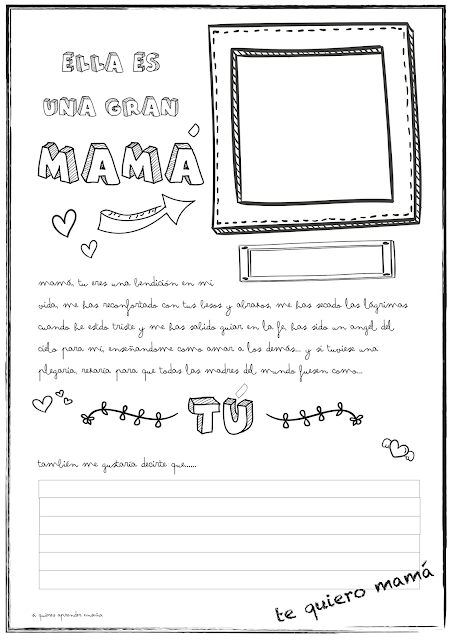 ELLA ES
UNA GRAN
MAMÁ
mamá, tu eres una bendición en mi
vida, me has reconfortado con tus besos y abrazos, me has secado las lágrimas
cuando he estado triste y me has sabido guiar en la fe, has sido un angel del
cielo para mi, enseñandome como amar a los demás... y si tuviese una
plegaria, rezaria para que todas las madres del mundo fuesen como...
TÚ
también me gustaria decirte que......
te quiero mamá
si quieres aprender enseña